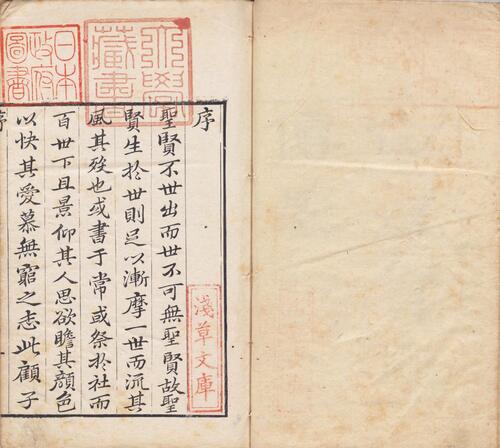 序
聖賢不世出而世不可無聖賢故聖
賢生於世則足以漸摩一世而流其
風其歿也或書于常或祭於社而
百世下且景仰其人思欲瞻其顔色
以快其愛慕無窮之志此顧子
序
淺草文庫
日本
政府
圖書
藏書